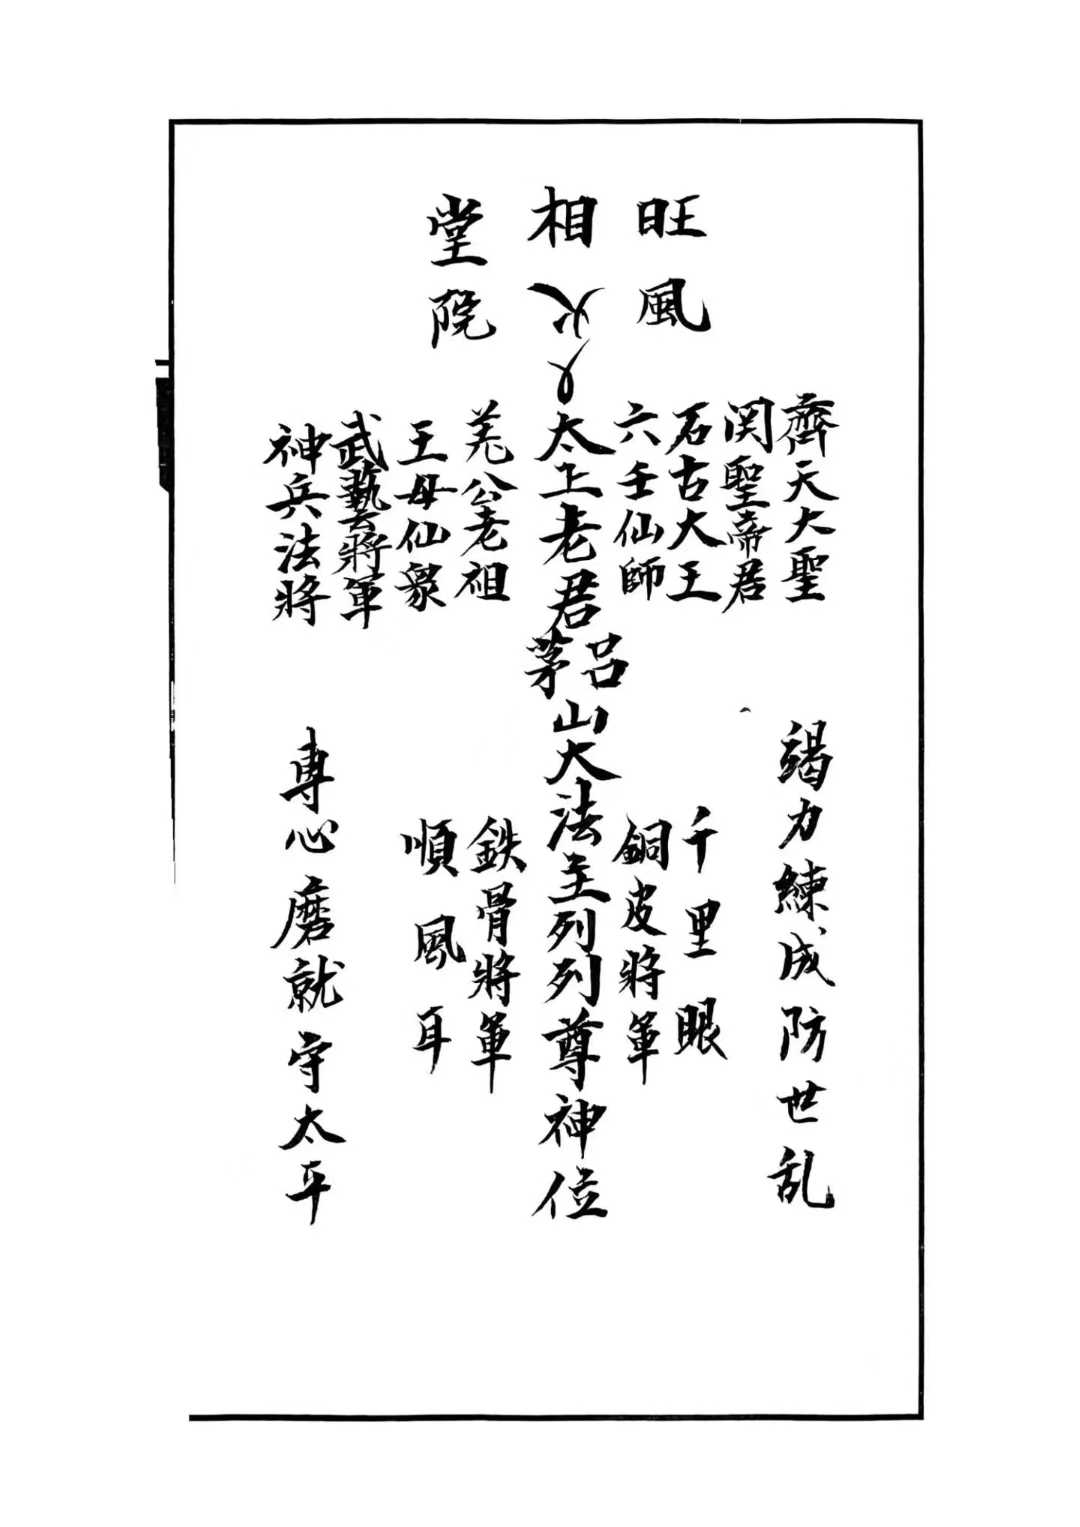 旺相堂
風火院
齊天大聖
関聖帝君
石古大王
六壬仙師
太上老君茅呂山大法主列列尊神位
羌公老祖
王母仙衆
武藝將軍
神兵法將
竭力練成防世乱
千里眼
銅皮將軍
鉄骨將軍
順風耳
專心磨就守太平